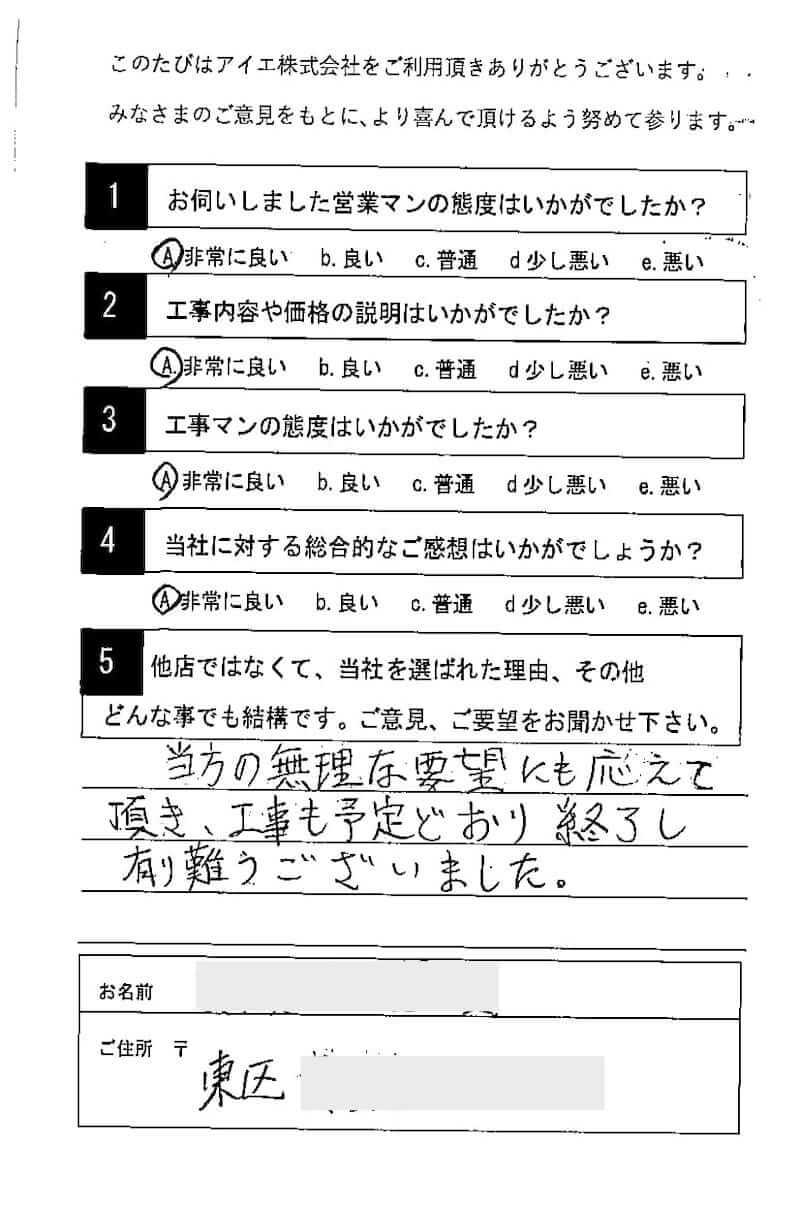 このたびはアイエ株式会社をご利用頂きありがとうございます。
みなさまのご意見をもとに、より喜んで頂けるよう努めて参ります。
1 お伺いしました営業マンの態度はいかがでしたか？
A 非常に良い b. 良い c. 普通 d 少し悪い e. 悪い
2 工事内容や価格の説明はいかがでしたか？
A. 非常に良い b. 良い c. 普通 d 少し悪い e. 悪い
3 工事マンの態度はいかがでしたか？
A 非常に良い b. 良い c. 普通 d 少し悪い e. 悪い
4 当社に対する総合的なご感想はいかがでしょうか？
A 非常に良い b. 良い c. 普通 d 少し悪い e. 悪い
5 他店ではなくて、当社を選ばれた理由、その他
どんな事でも結構です。ご意見、ご要望をお聞かせ下さい。
当方の無理な要望にも応えて
頂き、工事も予定どおり終了し
有り難うございました。
お名前
ご住所 〒
東区